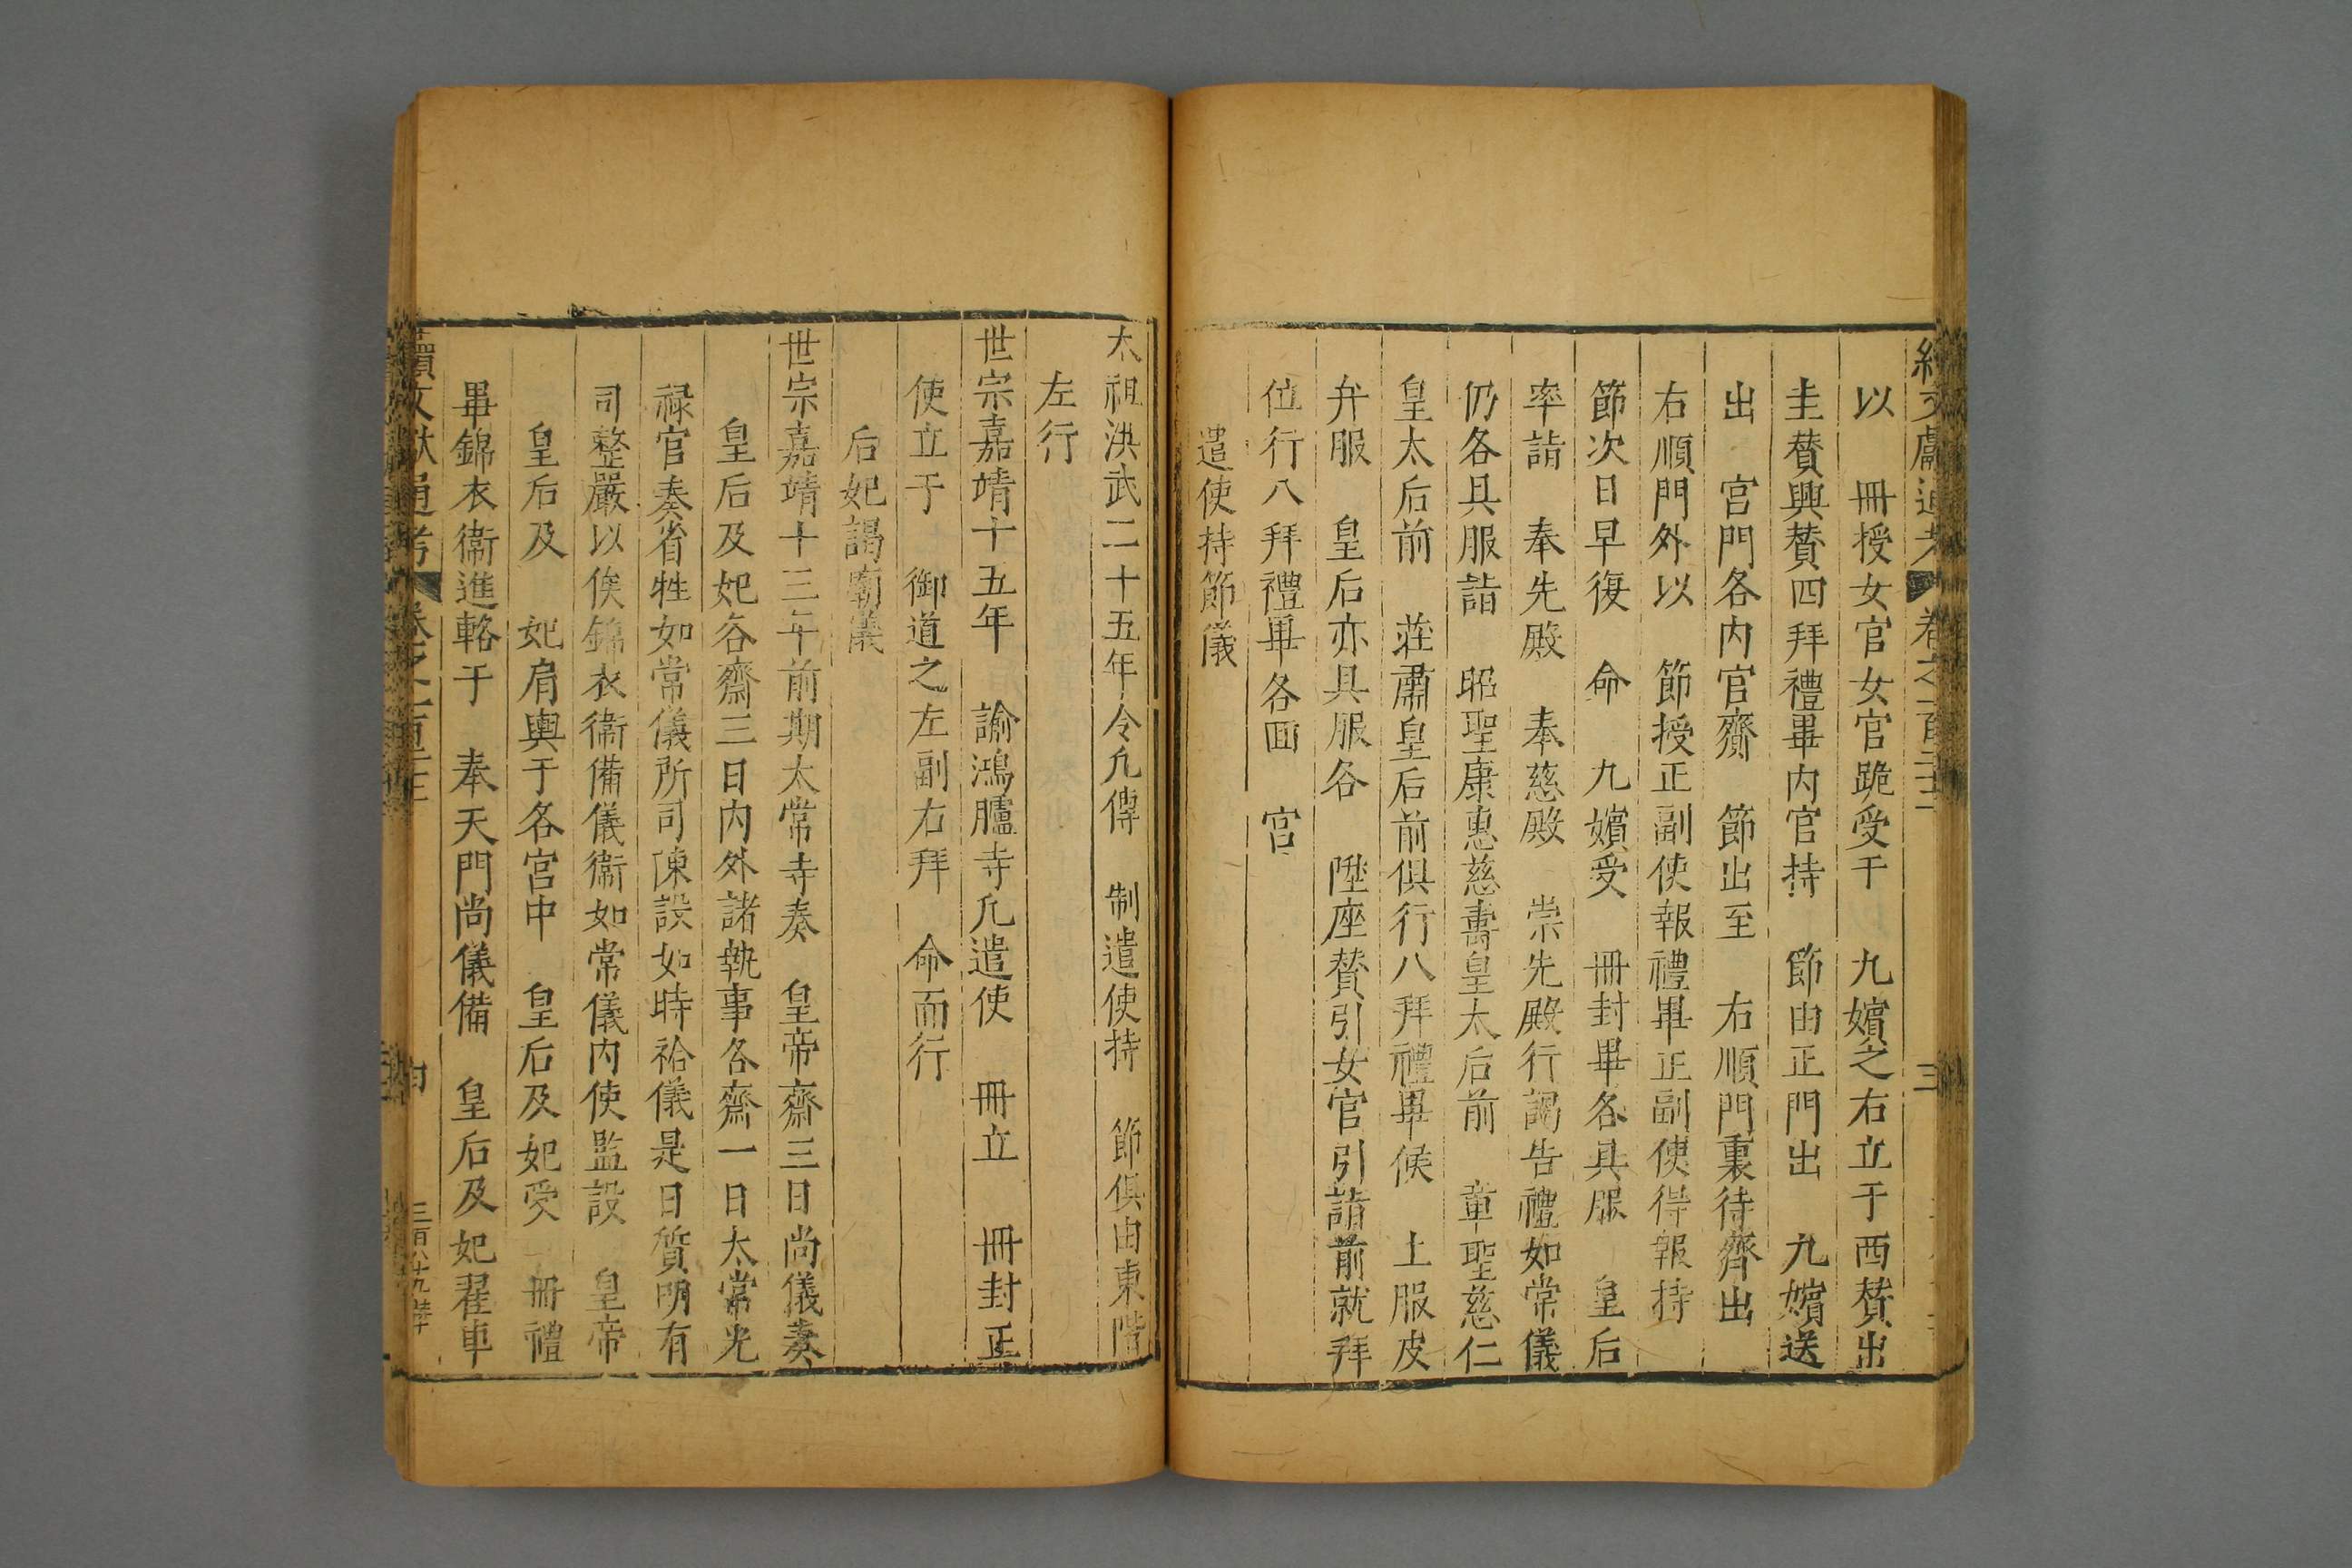 以 冊授女官女官跪受于 九嬪之右立于西贊出
圭贊興贊四拜禮畢内官持 節由正門出 九嬪送
出 宮門各内官齎 節出至 右順門裏待齊出
右順門外以 節授正副使報禮畢正副使得報持
節次日早復 命 九嬪受 冊封畢各具服 皇后
率詣 奉先殿 奉慈殿 崇先殿行謁告禮如常儀
仍各具服詣 昭聖康惠慈壽皇太后前 章聖慈仁
皇太后前 莊肅皇后前俱行八拜禮畢候 上服皮
弁服 皇后亦具服各 陞座贊引女官引詣前就拜
位行八拜禮畢各回 宮
遣使持節儀
太祖洪武二十五年令凡傳 制遣使持 節俱由東階
左行
世宗嘉靖十五年 諭鴻臚寺凡遣使 冊立 冊封正
使立于 御道之左副右拜 命而行
后妃謁廟儀
世宗嘉靖十三年前期太常寺奏 皇帝齋三日尚儀奏
皇后及妃各齋三日内外諸執事各齋一日太常光
禄官奏省牲如常儀所司陳設如時祫儀是日質明有
司整嚴以俟錦衣衞備儀衞如常儀内使監設 皇帝
皇后及 妃肩輿于各宮中 皇后及妃受 冊禮
畢錦衣衞進輅于 奉天門尚儀備 皇后及妃翟車
續文獻通考 卷之一百三